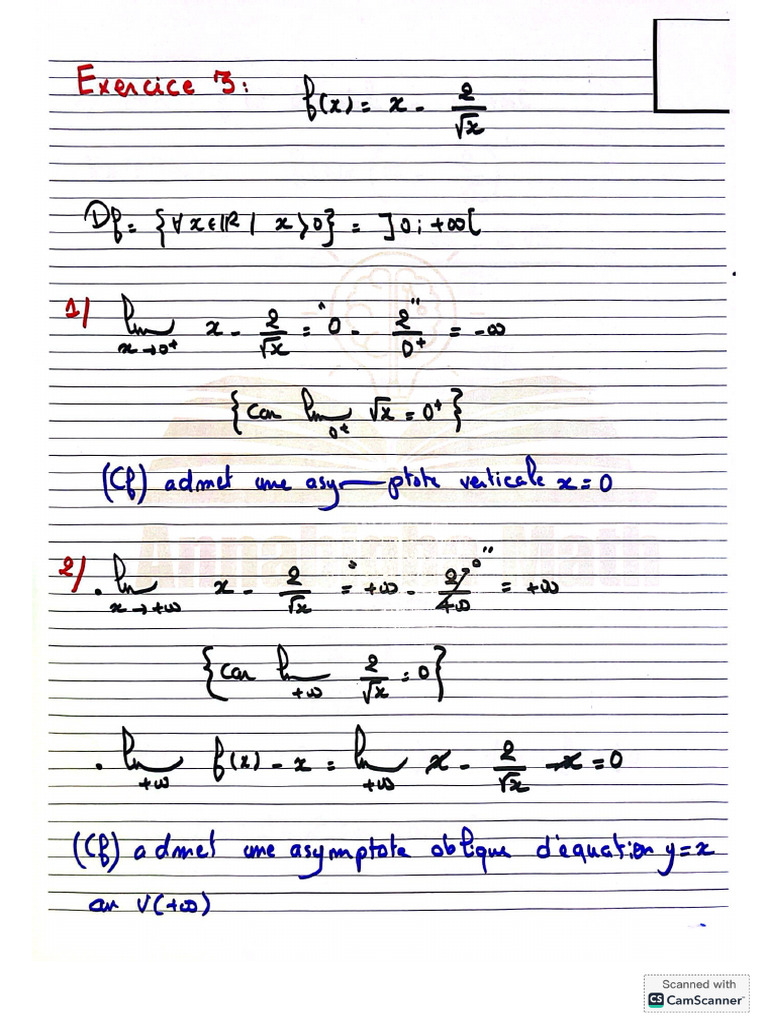 Exercice 3: f(x) = x - 2/√x
Df = {∀x∈ℝ / x>0} = ]0; +∞[
1/ lim x→0⁺ x - 2/√x = "0 - 2/0⁺" = -∞
{Car lim 0⁺ √x = 0⁺}
(Cf) admet une asymptote verticale x = 0
Annab Math
2/ . lim x→+∞ x - 2/√x = "+∞ - 2/+∞ 0" = +∞
{Car lim +∞ 2/√x = 0}
. lim +∞ f(x) - x = lim +∞ x - 2/√x - x = 0
(Cf) admet une asymptote oblique d'équation y = x
au V(+∞)
Scanned with
CS CamScanner